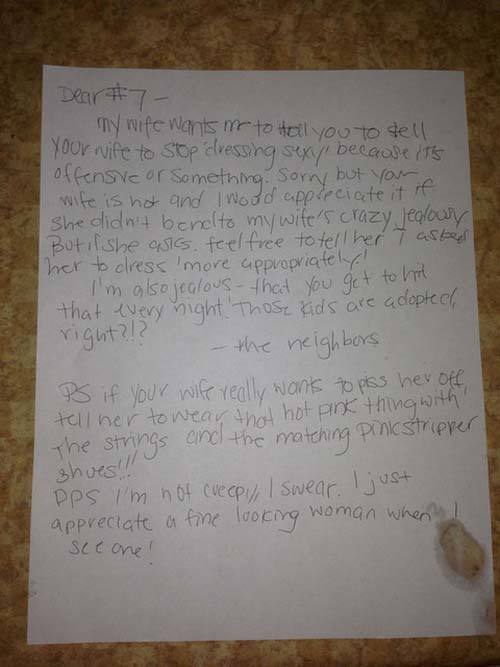 Dear #7 –
My wife wants me to tell you to tell
your wife to stop 'dressing sexy' because it's
offensive or something. Sorry but your
wife is hot and I would appreciate it if
she didn't bend to my wife's crazy jealousy
But if she asks. feel free to tell her I asked
her to dress 'more appropriately'!
I'm also jealous - that you get to hit
that every night! Those kids are adopted,
right?!?
– the neighbors
PS if your wife really wants to piss her off,
tell her to wear that hot pink thing with
the strings and the matching pink stripper
shoes!!!
PPS I'm not creepy, I swear. I just
appreciate a fine looking woman when I
see one!